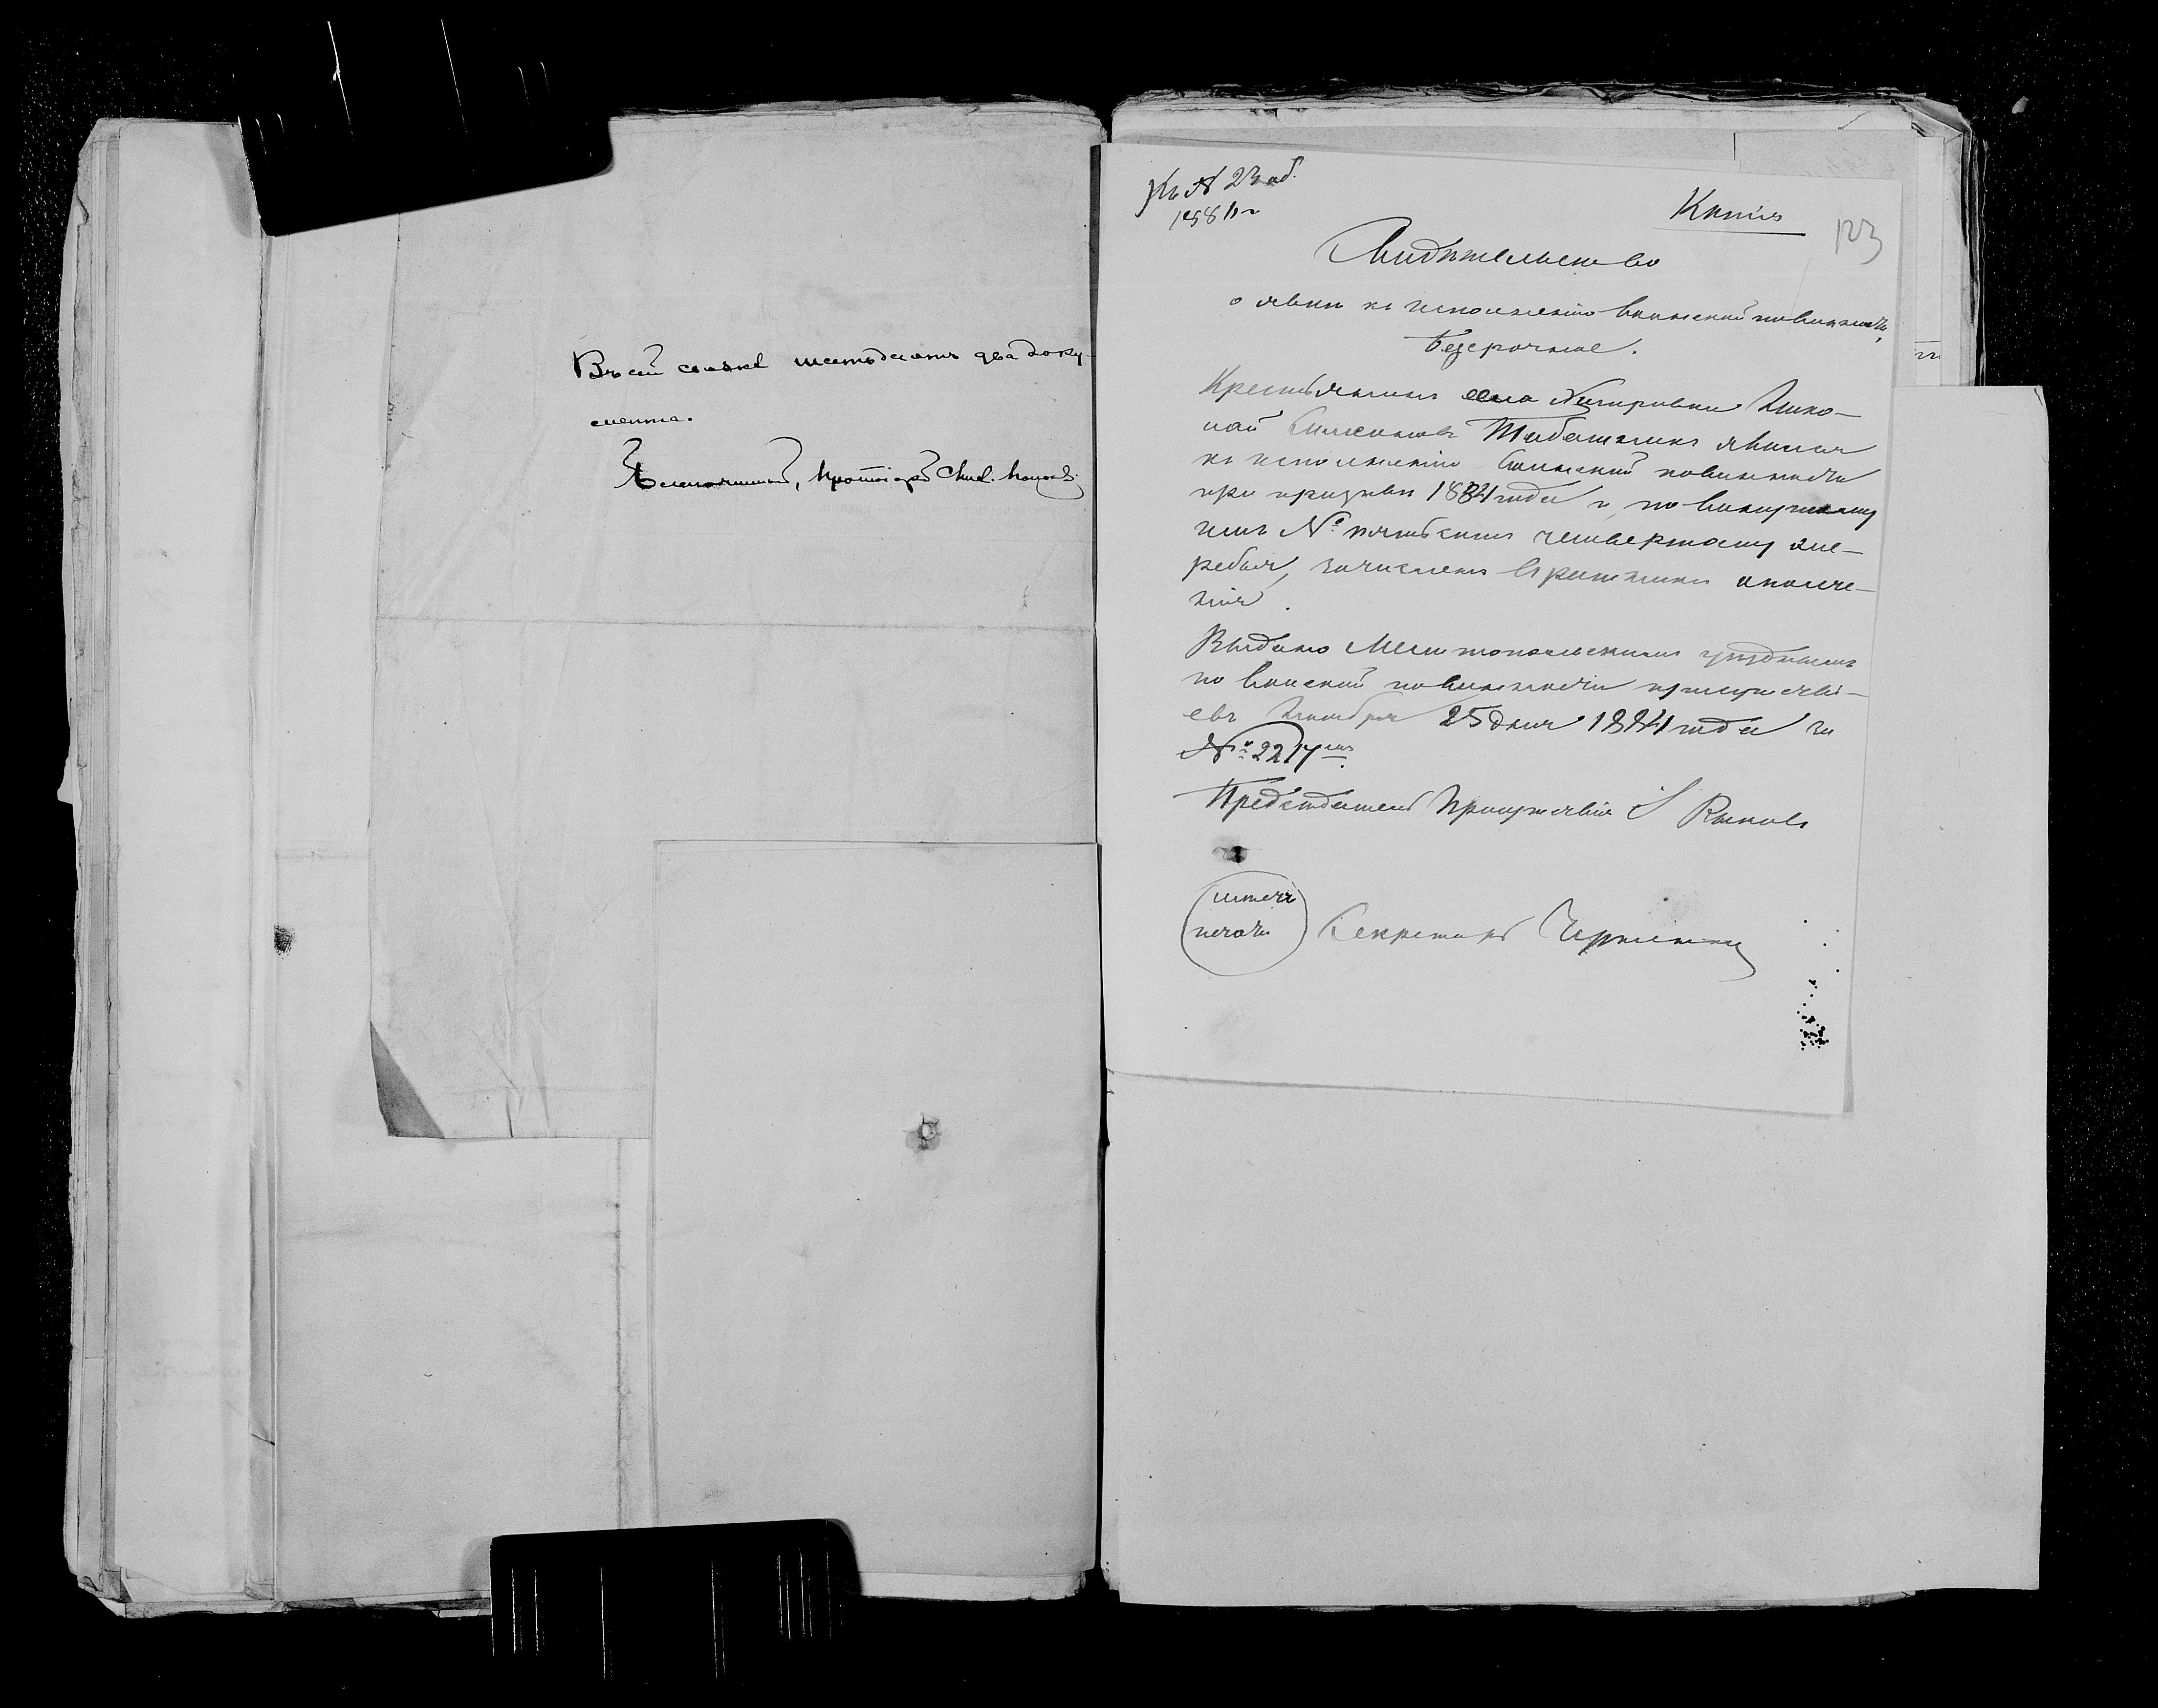 Въ сей связкѣ шестьдесятъ два доку-
мента.
Благочинный, протоіерей
Къ № 23 об.
Копія
123
Свидѣтельство
о явкѣ къ исполненію воинской повинности,
безсрочное.
Крестьянинъ села Нико-
лай явился
къ исполненію воинской повинности
при призывѣ 1884 года и, по вынутому
имъ № пятьсотъ четвертому же-
ребья, зачисленъ въ ратники ополче-
нія.
Выдано Мелитопольскимъ уѣзднымъ
по воинской повинности присутстві-
емъ Ноября 25 дня 1884 года за
№ 2217
Предсѣдатель Присутствія
мѣсто
печати
Секретарь